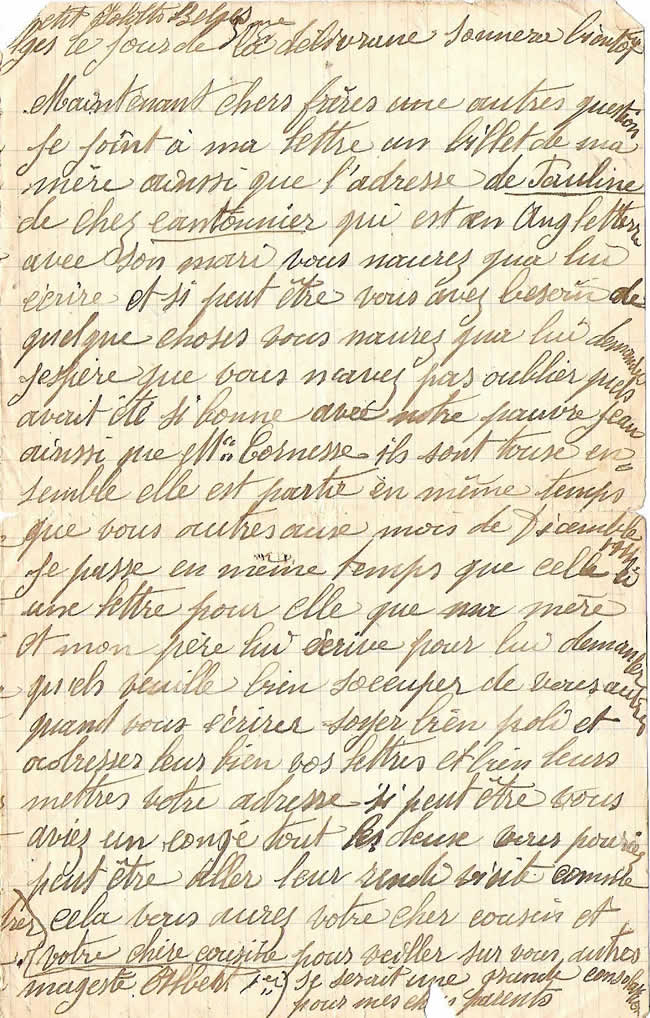 petit Belges
ges le jour de la délivrane sonnera bientot
Maintenant chers frères une autres question
Je joint à ma lettre un billet de ma
mère ainssi que l'adresse de Pauline
de chez cantonnier qui est en Angletterre
avec son mari vous naurez qua lui
écrire et si peut être vous avez besoin de
quelque choses vous naurez qua lui demander
Jespère que vous navez pas oublier quels
avait été si bonne avec notre pauvre Jean
ainssi que Cornesse ils sont touse en=
semble elle est partie en même temps
que vous autres aux mois de Décembre
Je passe en même temps que celle
une lettre pour elle que ma mère
et mon père lui écrive pour lui demander
qu'els veuille bien soccuper de vous autres
quand vous écrirer soyer bien poli et
adresser leur bien vos lettres et bien leurs
mettres votre adresse si peut être vous
aviez un congé tout les deuse vous pouriez
peut être aller leur rendre visite comme
cela vous aurez votre cher cousin et
votre chère cousine pour veiller sur vous autres
magesté Albert 1er) se serait une grande consolation
pour mes chers parents